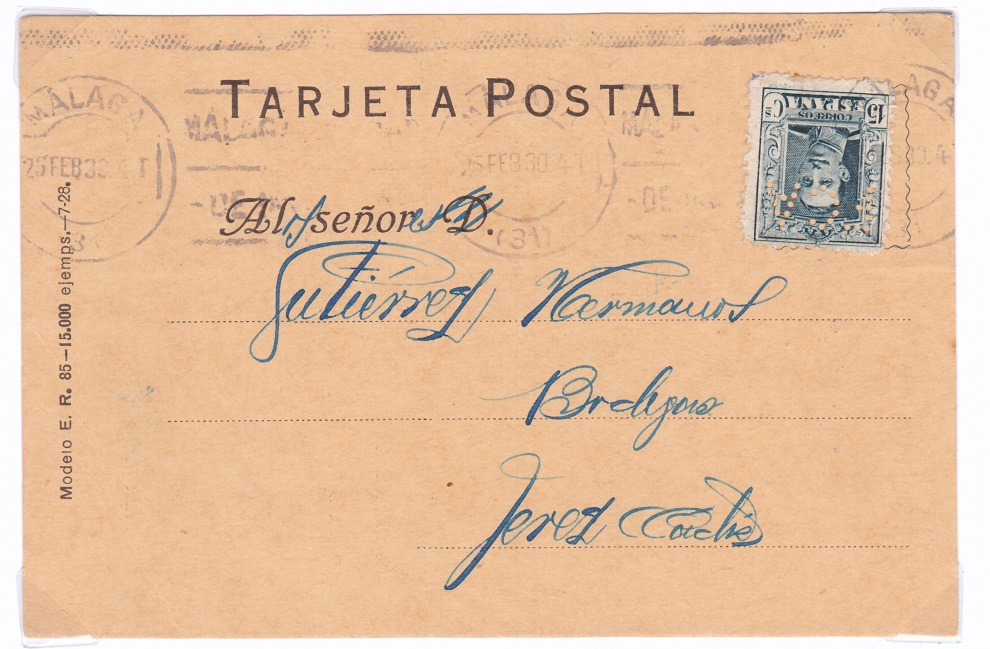 TARJETA POSTAL
MÁLAGA
25 FEB 30. 4 T
(3)
MÁLAGA
MÁLAGA
25 FEB 30. 4 T
(31)
MÁLAGA
MÁLAGA
15 Cs
CORREOS
ESPAÑA
Al señor D.
Gutiérrez Hermanos
Bodegas
Jerez Cadiz
Modelo E. R. 85—15.000 ejemps.—7-28.